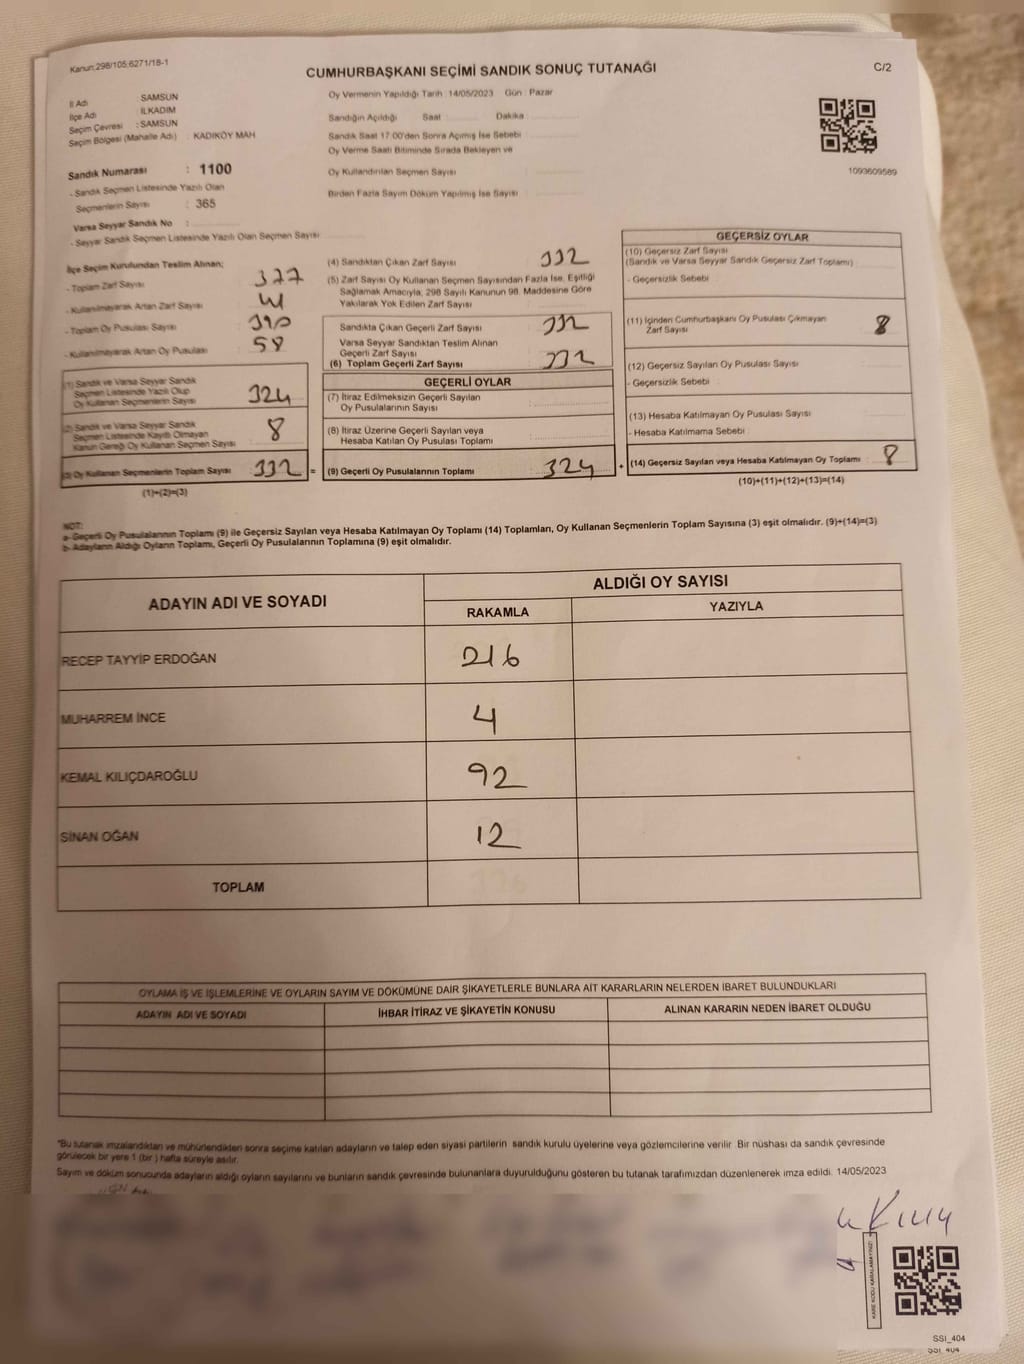 Kanun:298/105;6271/18-1
CUMHURBAŞKANI SEÇİMİ SANDIK SONUÇ TUTANAĞI
C/2
İl Adı : SAMSUN
İlçe Adı : İLKADIM
Seçim Çevresi : SAMSUN
Seçim Bölgesi (Mahalle Adı) : KADIKÖY MAH
Sandık Numarası : 1100
- Sandık Seçmen Listesinde Yazılı Olan
Seçmenlerin Sayısı : 365
Varsa Seyyar Sandık No :
- Seyyar Sandık Seçmen Listesinde Yazılı Olan Seçmen Sayısı
Oy Vermenin Yapıldığı Tarih : 14/05/2023 Gün : Pazar
Sandığın Açıldığı Saat : Dakika :
Sandık Saat 17.00'den Sonra Açılmış İse Sebebi
Oy Verme Saati Bitiminde Sırada Bekleyen ve
Oy Kullandırılan Seçmen Sayısı
Birden Fazla Sayım Döküm Yapılmış İse Sayısı
1093609589
İlçe Seçim Kurulundan Teslim Alınan;
- Toplam Zarf Sayısı : 377
- Kullanılmayarak Artan Zarf Sayısı
- Toplam Oy Pusulası Sayısı : 390
- Kullanılmayarak Artan Oy Pusulası : 58
(1) Sandık ve Varsa Seyyar Sandık
Seçmen Listesinde Yazılı Olup
Oy Kullanan Seçmenlerin Sayısı 324
(2) Sandık ve Varsa Seyyar Sandık
Seçmen Listesinde Kayıtlı Olmayan
Kanun Gereği Oy Kullanan Seçmen Sayısı 8
(3) Oy Kullanan Seçmenlerin Toplam Sayısı 332 =
(1)+(2)=(3)
(4) Sandıktan Çıkan Zarf Sayısı 332
(5) Zarf Sayısı Oy Kullanan Seçmen Sayısından Fazla İse, Eşitliği
Sağlamak Amacıyla, 298 Sayılı Kanunun 98. Maddesine Göre
Yakılarak Yok Edilen Zarf Sayısı
Sandıkta Çıkan Geçerli Zarf Sayısı 332
Varsa Seyyar Sandıktan Teslim Alınan
Geçerli Zarf Sayısı
(6) Toplam Geçerli Zarf Sayısı 332
GEÇERLİ OYLAR
(7) İtiraz Edilmeksizin Geçerli Sayılan
Oy Pusulalarının Sayısı :
(8) İtiraz Üzerine Geçerli Sayılan veya
Hesaba Katılan Oy Pusulası Toplamı :
(9) Geçerli Oy Pusulalarının Toplamı 324 +
GEÇERSİZ OYLAR
(10) Geçersiz Zarf Sayısı
(Sandık ve Varsa Seyyar Sandık Geçersiz Zarf Toplamı)
- Geçersizlik Sebebi :
(11) İçinden Cumhurbaşkanı Oy Pusulası Çıkmayan
Zarf Sayısı 8
(12) Geçersiz Sayılan Oy Pusulası Sayısı :
- Geçersizlik Sebebi :
(13) Hesaba Katılmayan Oy Pusulası Sayısı
- Hesaba Katılmama Sebebi :
(14) Geçersiz Sayılan veya Hesaba Katılmayan Oy Toplamı : 8
(10)+(11)+(12)+(13)=(14)
NOT:
a-Geçerli Oy Pusulalarının Toplamı (9) ile Geçersiz Sayılan veya Hesaba Katılmayan Oy Toplamı (14) Toplamları, Oy Kullanan Seçmenlerin Toplam Sayısına (3) eşit olmalıdır. (9)+(14)=(3)
b-Adayların Aldığı Oyların Toplamı, Geçerli Oy Pusulalarının Toplamına (9) eşit olmalıdır.
ADAYIN ADI VE SOYADI
ALDIĞI OY SAYISI
RAKAMLA YAZIYLA
RECEP TAYYİP ERDOĞAN 216
MUHARREM İNCE 4
KEMAL KILIÇDAROĞLU 92
SİNAN OĞAN 12
TOPLAM
OYLAMA İŞ VE İŞLEMLERİNE VE OYLARIN SAYIM VE DÖKÜMÜNE DAİR ŞİKAYETLERLE BUNLARA AİT KARARLARIN NELERDEN İBARET BULUNDUKLARI
ADAYIN ADI VE SOYADI İHBAR İTİRAZ VE ŞİKAYETİN KONUSU ALINAN KARARIN NEDEN İBARET OLDUĞU
*Bu tutanak imzalandıktan ve mühürlendikten sonra seçime katılan adayların ve talep eden siyasi partilerin sandık kurulu üyelerine veya gözlemcilerine verilir. Bir nüshası da sandık çevresinde
görülecek bir yere 1 (bir) hafta süreyle asılır.
Sayım ve döküm sonucunda adayların aldığı oyların sayılarını ve bunların sandık çevresinde bulunanlara duyurulduğunu gösteren bu tutanak tarafımızdan düzenlenerek imza edildi. 14/05/2023
KARE KODU KARALAMAYINIZ!
SSİ_404
SSİ_404